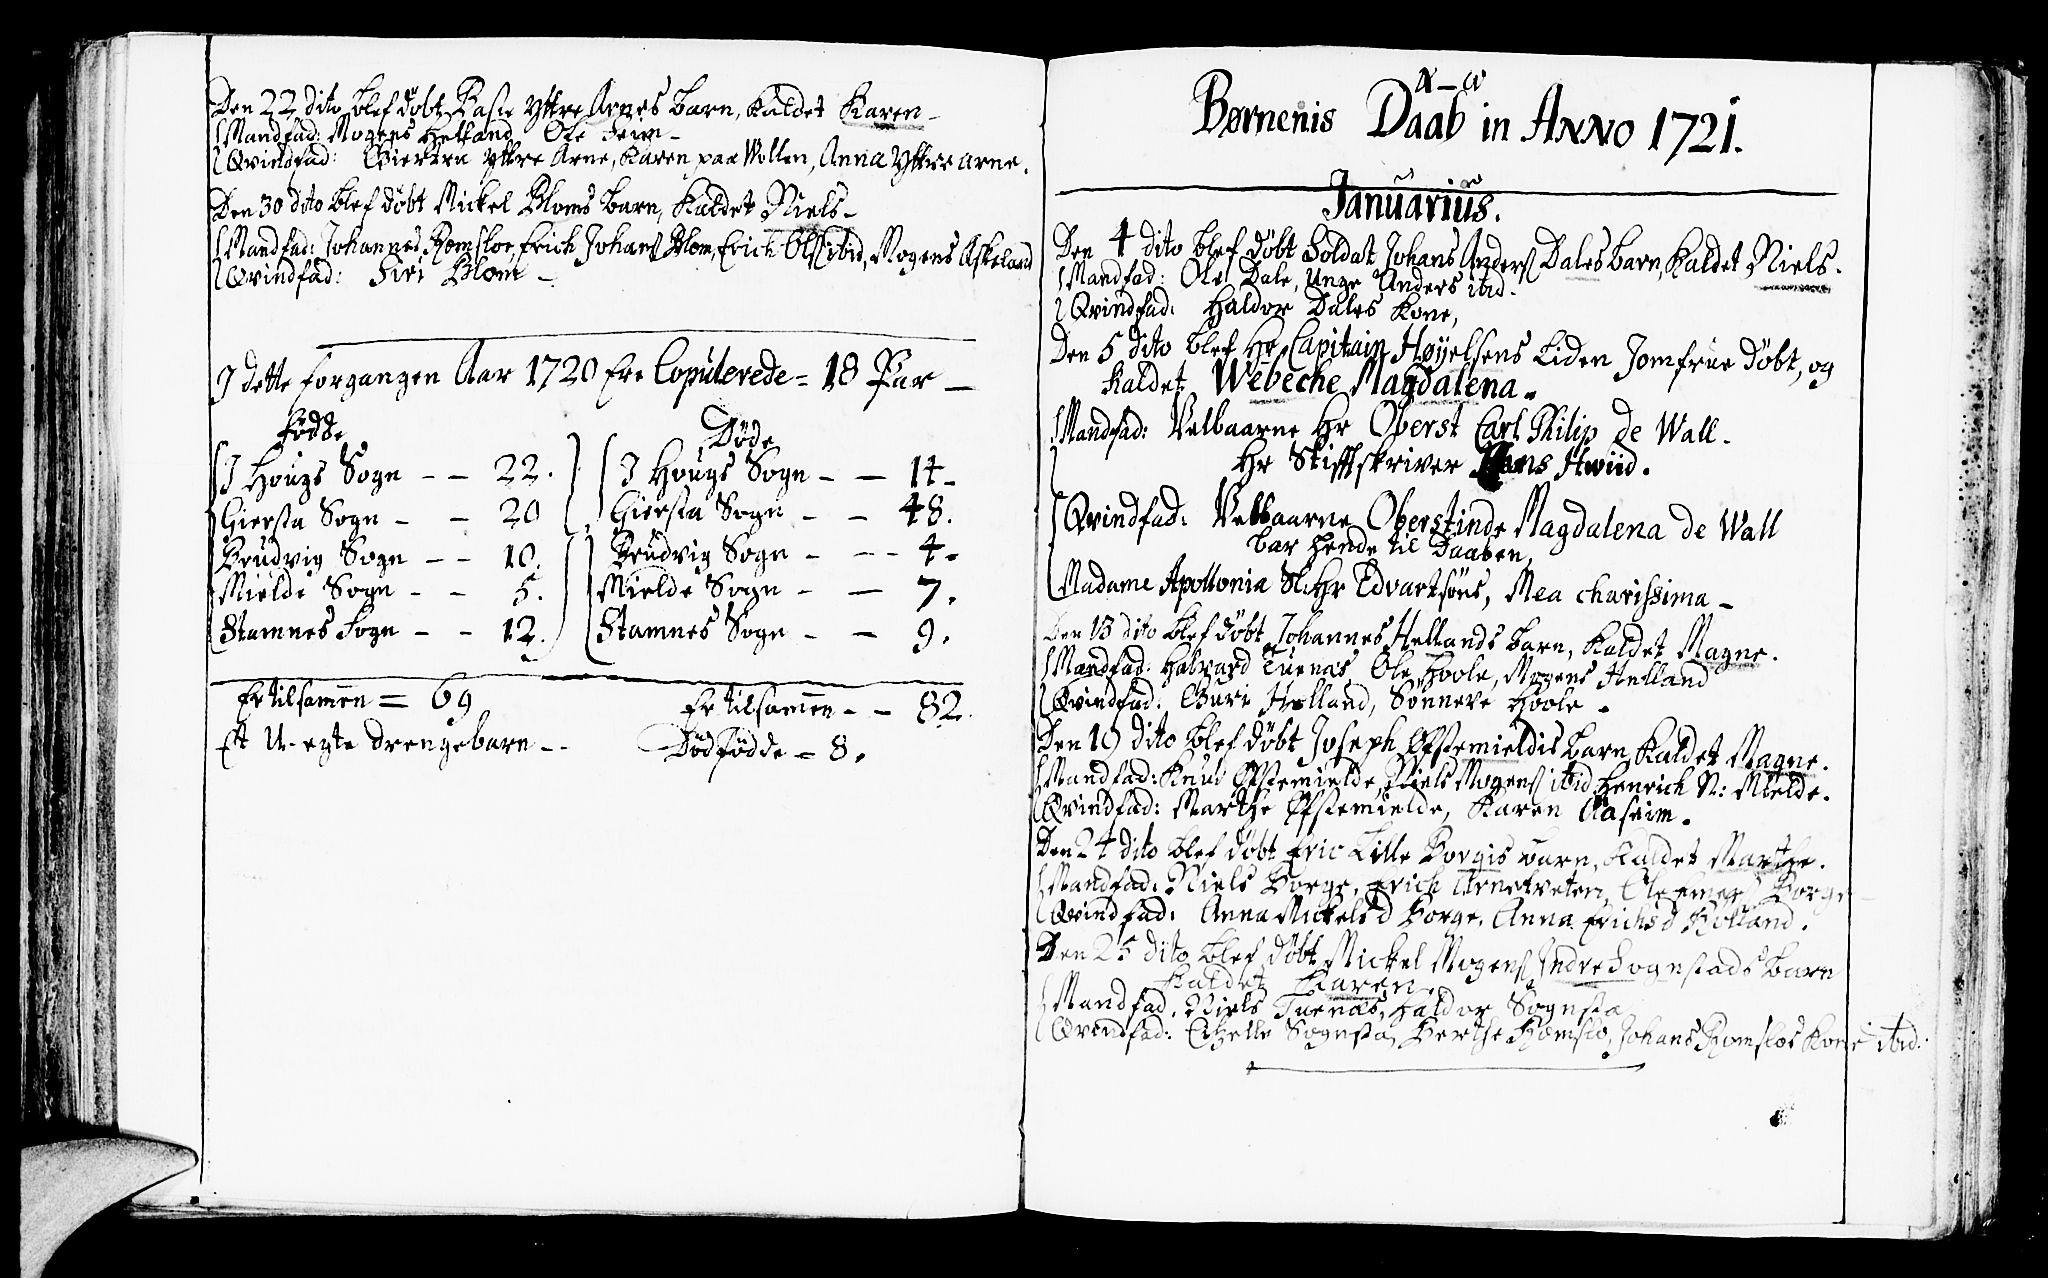 Den 22 dito blef døbt Baste Yttre Arnes barn, kaldet Karen
Mandfad: Mogens Helland, Ole
Qvindfad: Giertru Yttre Arne, Karen paa Wollen, Anna Yttre Arne.
Den 30 dito blef døbt Mickel Bloms barn, kaldet Niels
Mandfad: Johannes Romsloe, Erich Johans Blom, Erich Ols ibid, Mogens Askeland
Qvindfad: Siri Blom
I dette forgangen Aar 1720 ere Copulerede = 18 Par
Fødde
Døde
I Hougs Sogn - - 22.
I Hougs Sogn - - 14
Giersta Sogn - - 20
Giersta Sogn - - 48.
Brudvig Sogn - - 10.
Brudvig Sogn - - - 4
Mielde Sogn - - 5.
Mielde Sogn - - 7.
Stamnes Sogn - - 12.
Stamnes Sogn - - 9.
Er tilsamen = 69
Er tilsamen - - 82.
Et U-egte drengebarn - -
Dødfødde = 8.
A - ω
Børnenis Daab in ANNO 1721.
Januarius.
Den 4 dito blef døbt Soldat Johans Anders Dales barn, kaldet Niels.
Mandfad: Ole Dale, Unge Anders ibid.
Qvindfad: Haldor Dales Kone,
Den 5 dito blef Hr Capitain Høyelsens liden Jomfrue døbt, og
kaldet Webeche Magdalena.
Mandfad: Velbaarne Hr Oberst Carl Philip de Wall.
Hr Stifftskriver Hans Hwiid.
Qvindfad: Velbaarne Oberstinde Magdalena de Wall
bar hende til Daaben,
Madame Apollonia Sl. Hr Edvartsøns, Mea charissima
Den 13 dito blef døbt Johannes Hellands barn, kaldet Magne.
Mandfad: Halvard Tuenæs, Ole Hoole, Mogens Helland
Qvindfad: Guri Helland, Sønneve Hoole
Den 19 dito blef døbt Joseph Øfstemieldis barn kaldet Magne.
Mandfad: Knud Øfstemielde, Niels Mogens ibid, Henrich N: Mielde.
Qvindfad: Marthe Øfstemielde, Karen Aaseim.
Den 24 dito blef døbt Eric Lille Borgis barn, kaldet Marthe.
Mandfad: Niels Borge, Erich Arnetveten, Borge
Qvindfad: Anna Mickelsd Borge, Anna Erichsd Holland.
Den 25 dito blef døbt Mickel Mogens Indre Sognstads barn
kaldet Karen.
Mandfad. Niels Tuenæs, Haldor Sognsta
Qvindfad: Sognsta, Berthe Romslo, Johans Romsloes Kone ibid.